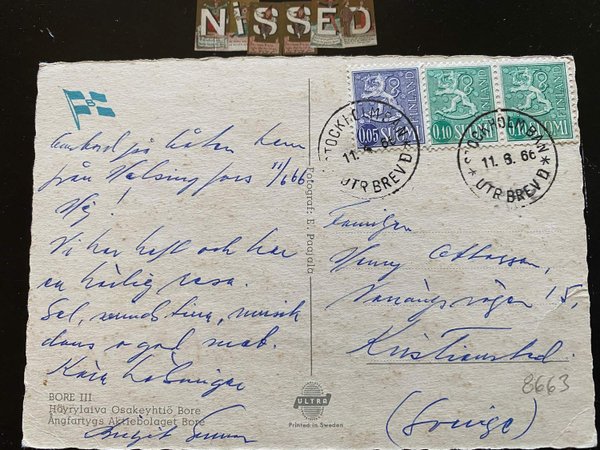 NiSSED
B
Ombord på båten hem
från Helsingfors 11/6 66
Hej!
Vi har haft och har
en härlig resa.
Sol, sommar, musik
dans o god mat.
Kära hälsningar
Birgit
BORE III
Höyrylaiva Osakeyhtiö Bore
Ångfartygs Aktiebolaget Bore
Fotograf: E. Paajala
ULTRA
Printed in Sweden
0,05 SUOMI FINLAND
0,10 SUOMI FINLAND
0,10 SUOMI FINLAND
STOCKHOLM BAN
11. 66
UTR BREV D
STOCKHOLM BAN
11. 66
UTR BREV D
Familjen
Ottosson,
15,
Kristianstad
(Sverige)
8663